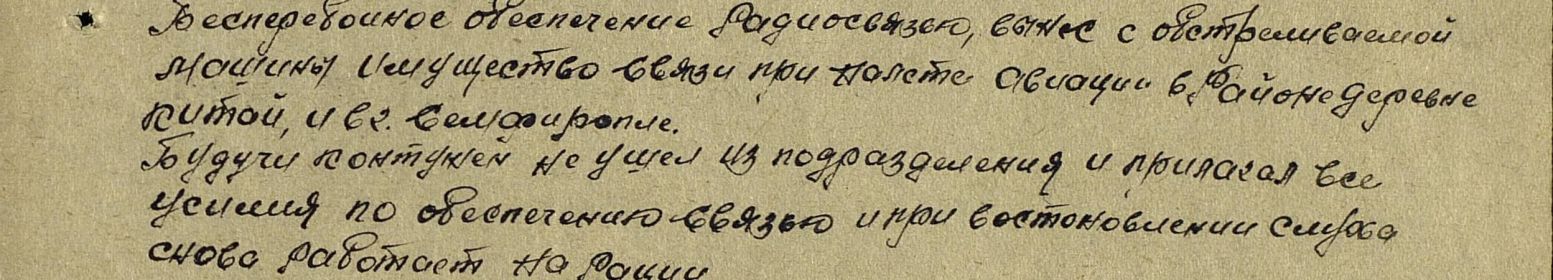 Бесперебоиное обеспечение радиосвязью, вынес с обстреливаемой
машины имущество связи при налете авиации в районе деревне
Китай, и в г. Семфирополе.
Будучи контужен не ушел из подразделения и прилагал все
усилия по обеспечению связью и при востоновлении слуха
снова работает на рации